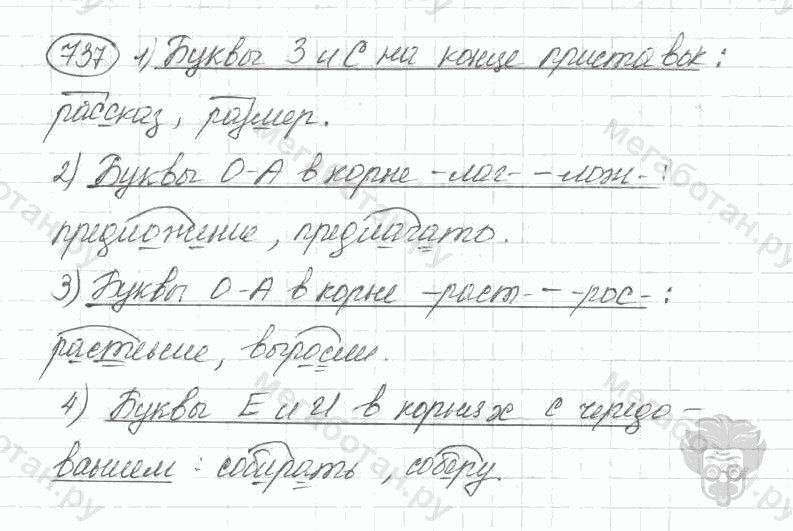 737 1) Буквы З и С на конце приставок:
рассказ, размер.
2) Буквы О-А в корне -лаг- - -лож-:
предложение, предлагать.
3) Буквы О-А в корне -раст- - -рос-:
растение, выросли.
4) Буквы Е и И в корнях с чередо-
ванием: собирать, соберу.
мегаботан.ру